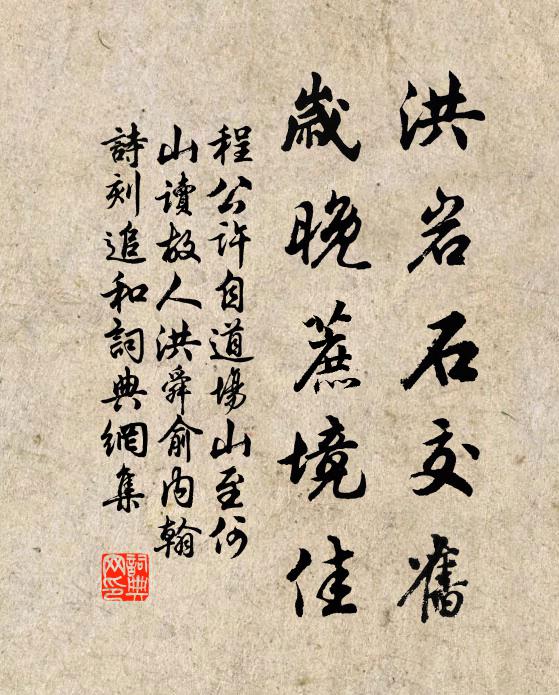 洪岩石交舊
歲晚蔗境佳
程公許自道場山至何
山讀故人洪舜俞內翰
詩刻追和詞典網集
詞典網印